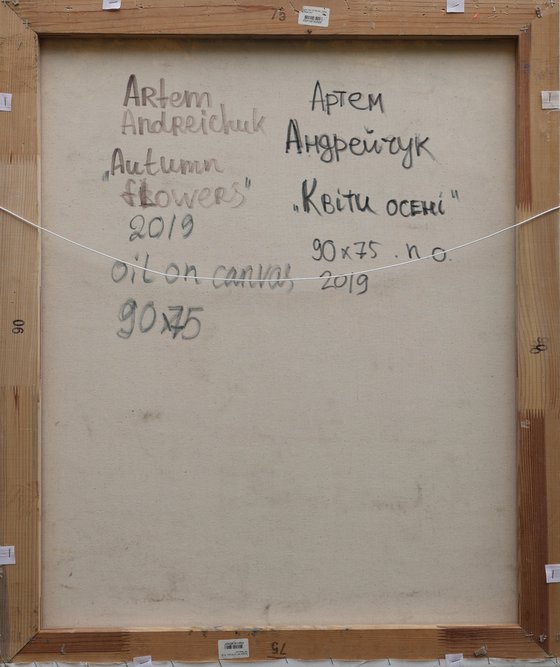 75
Artem
Andreichuk
„Autumn
flowers"
2019
oil on canvas
90x75
Артем
Андрейчук
„Квіти осені"
90x75 . п о.
2019
90
75